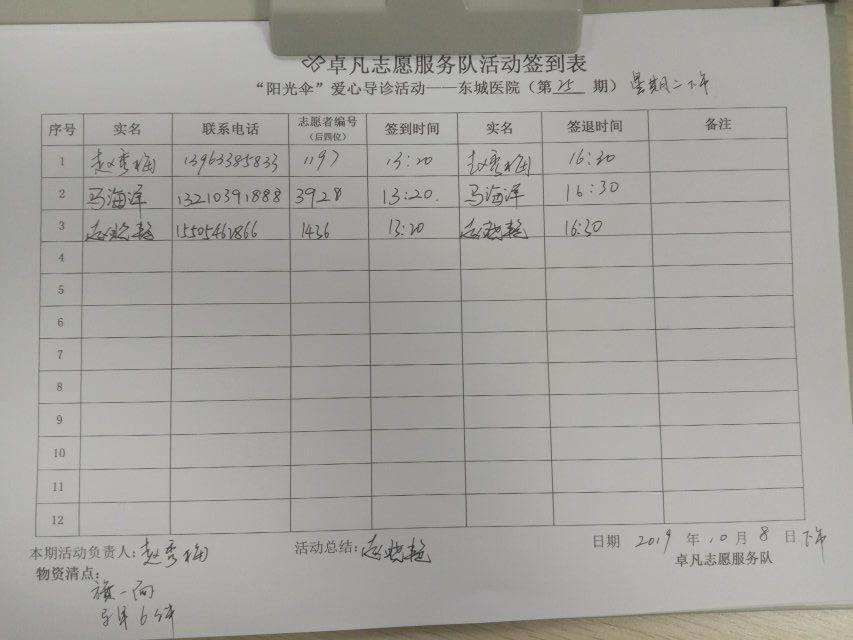 卓凡志愿服务队活动签到表
“阳光伞”爱心导诊活动——东城医院（第 25 期） 星期二下午
序号 实名 联系电话 志愿者编号（后四位） 签到时间 实名 签退时间 备注
1 赵秀梅 13963385833 1197 13:20 赵秀梅 16:30
2 马海洋 13210391888 3928 13:20. 马海洋 16:30
3 赵晓艳 15505461866 1436 13:20 赵晓艳 16:30
4
5
6
7
8
9
10
11
12
本期活动负责人: 赵秀梅 活动总结: 赵晓艳 日期 2019 年 10 月 8 日 下午
卓凡志愿服务队
物资清点:
旗一面
6